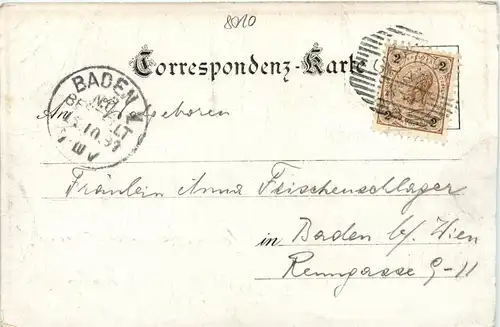 8010
Correspondenz-Karte
2 2
2 2
BADEN 1
BESTELLT
An
geboren
Fräulein Anna Frischenschlager
in Baden b/ Wien
Renngasse 9-11